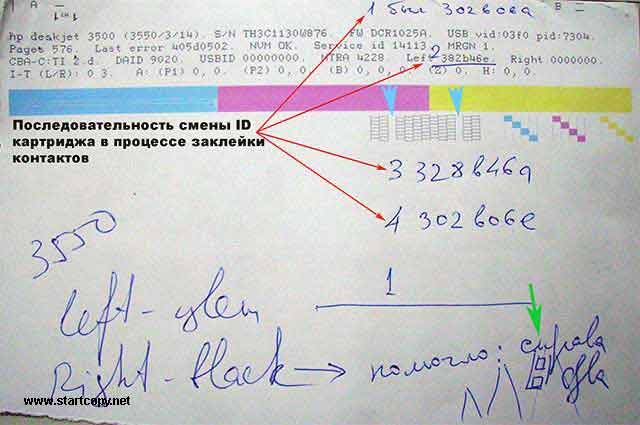 A B
1 был 302b06a
hp deskjet 3500 (3550/3/14). S/N TH3C1130W876. FW DCR1025A. USB vid:03f0 pid:7304.
Pages 576. Last error 405d0502. NVM OK. Service id 14113. MRGN 1.
2
CBA-C:TI 2.d. DAID 9020. USBID 00000000. MTRA 4228. Left 382b46e. Right 0000000.
I-T (L/R): 0 3. A: (P1) 0, 0, (P2) 0, 0, (B) 0, 0, (Z) 0. H: 0, 0.
Последовательность смены ID
картриджа в процессе заклейки
контактов
3 328b46a
4 302b06e
3550
1
left - цвет
Right - black → помогло: справа
два
www.startcopy.net